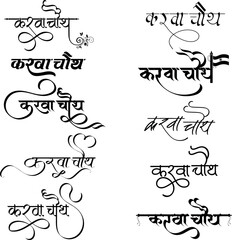 करवा चौथ
करवा चौथ
करवा चौथ
करवा चौथ
करवा चौथ
करवा चौथ
करवा चौथ
करवा चौथ
करवा चौथ
करवा चौथ